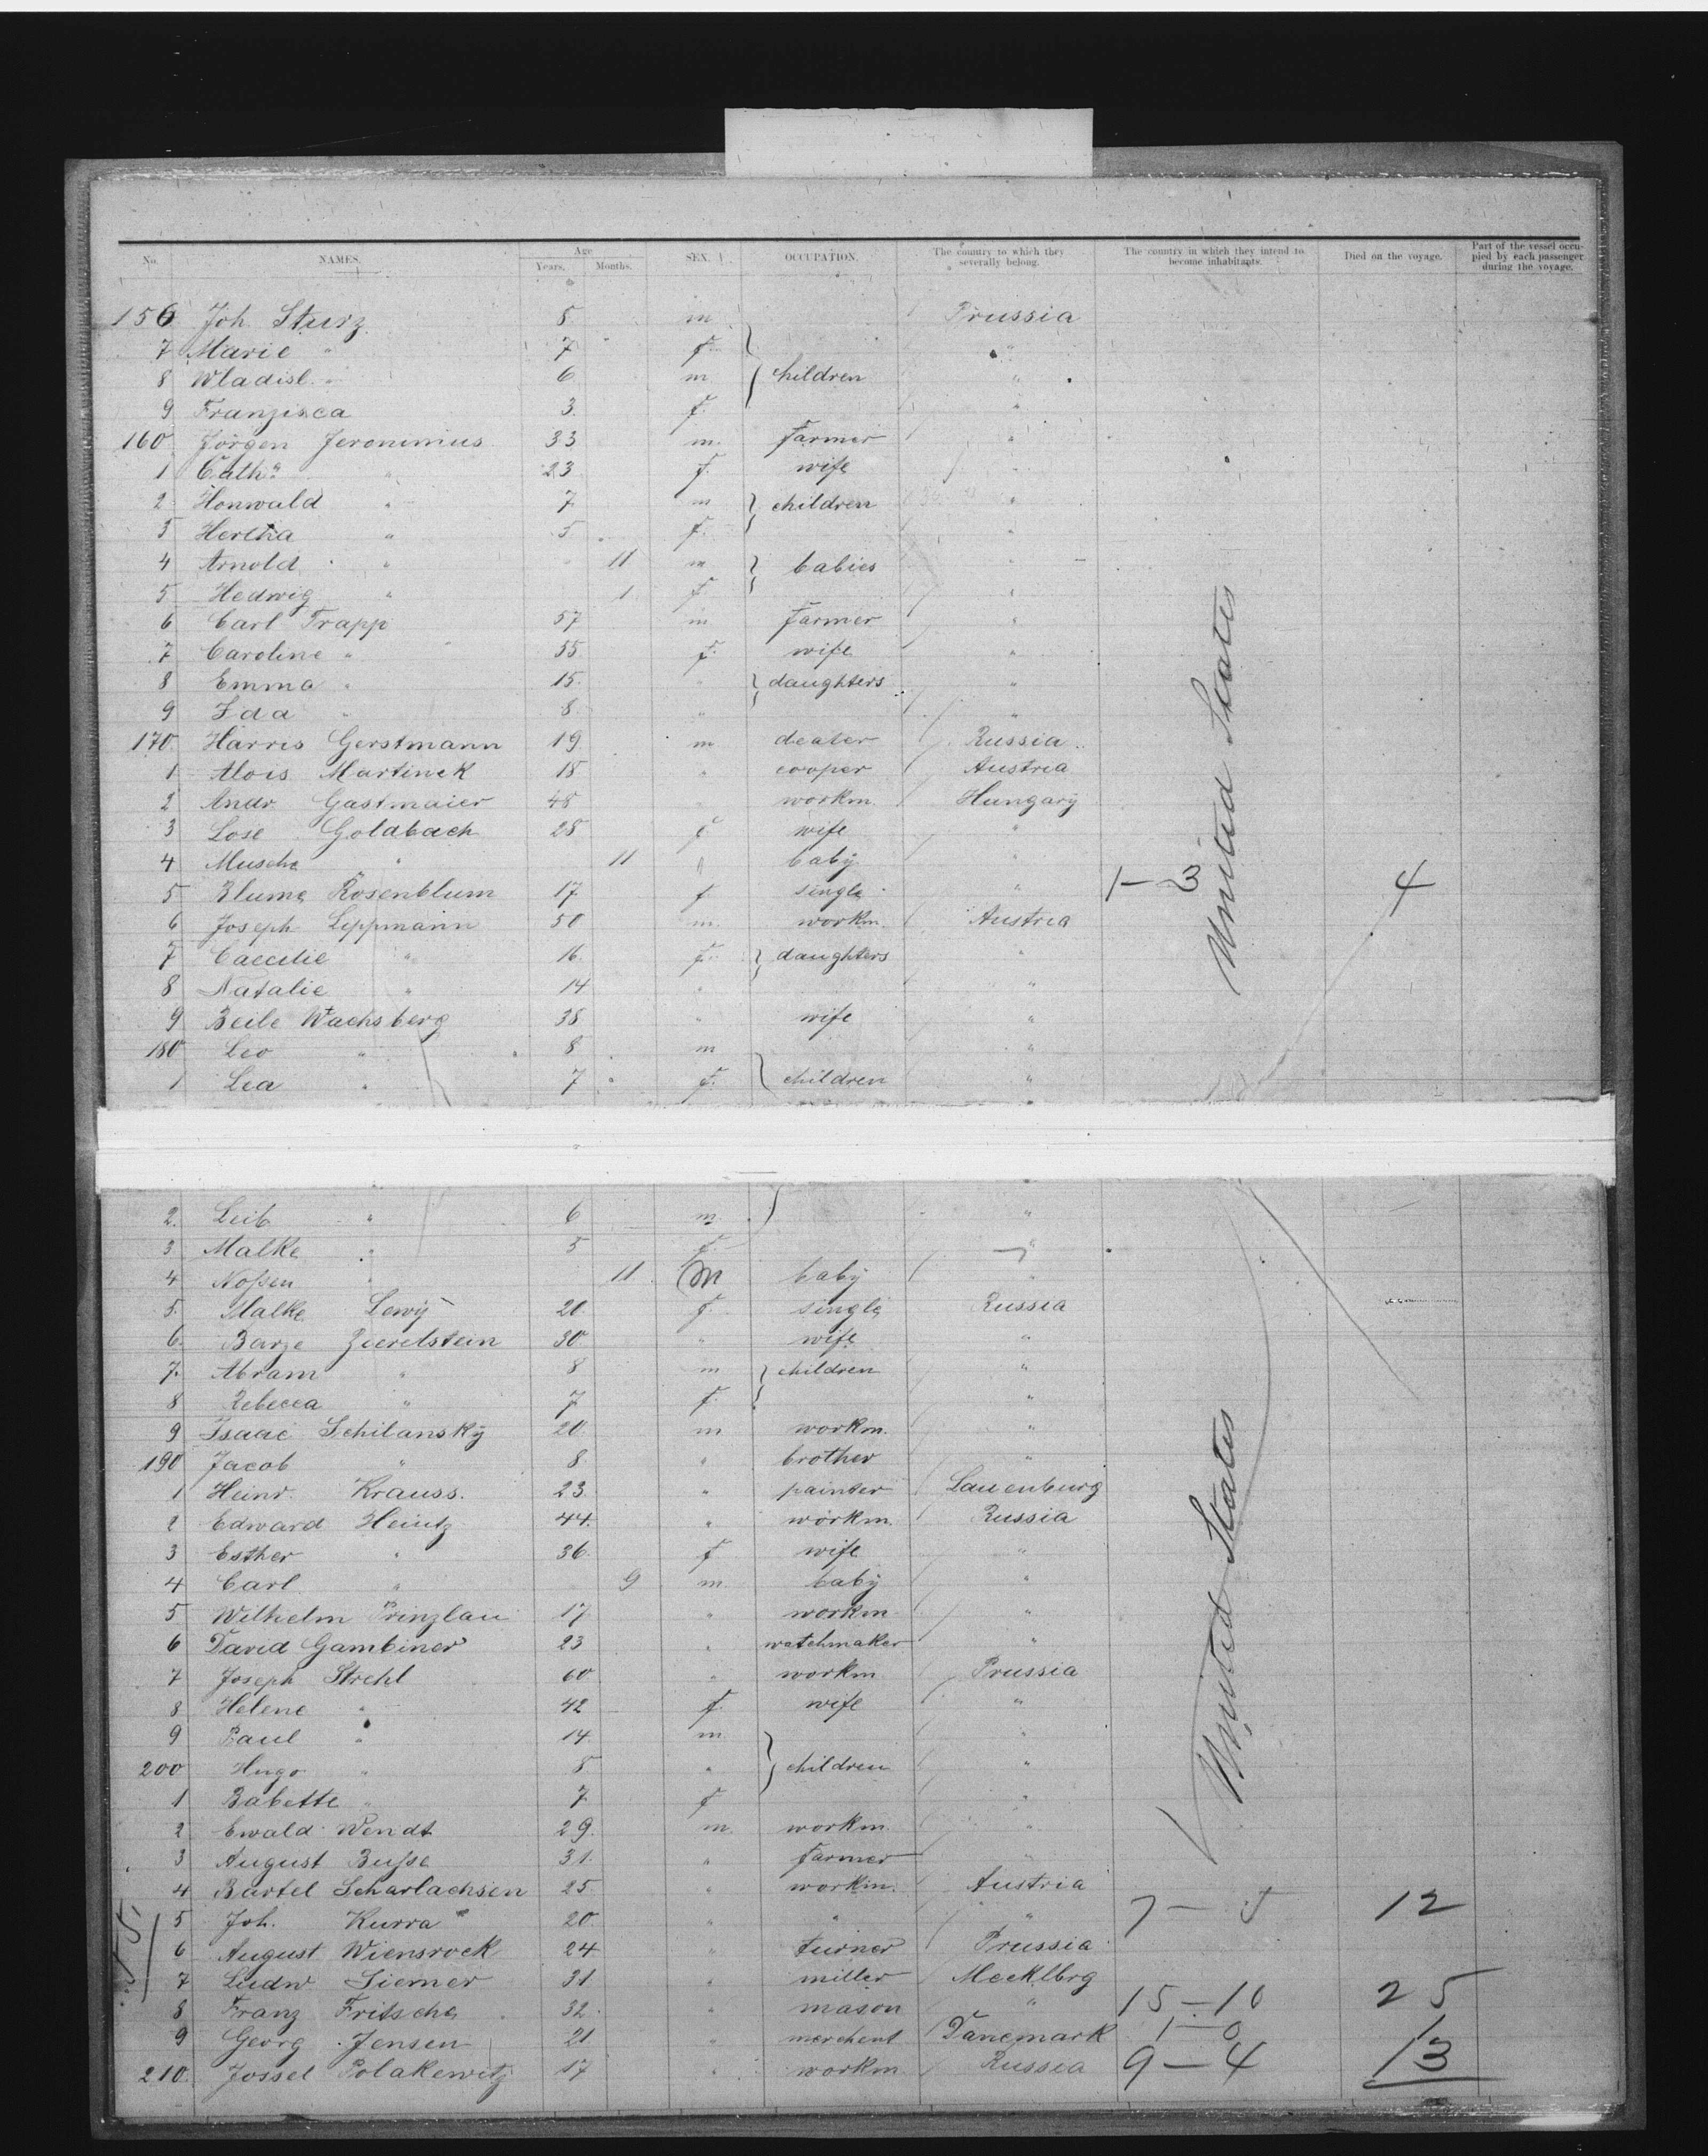 No. NAMES. Age Years. Months. SEX. OCCUPATION. The country to which they severally belong. The country in which they intend to become inhabitants. Died on the voyage. Part of the vessel occupied by each passenger during the voyage.
156 Joh Sturz 8 m Prussia
7 Marie " 7 f "
8 Wladisl. " 6 m children "
9 Franzisca 3 f. "
160 Jörgen Jeronimus 33 m. farmer "
1 Cath. " 23 f. wife "
2 Honwald " 7 m children "
3 Hertha " 5 f. "
4 Arnold " 11 m babies "
5 Hedwig " 1 f "
6 Carl Trapp 57 m farmer "
7 Caroline " 55 f. wife "
8 Emma " 15 " daughters "
9 Ida " 8 " "
170 Harris Gerstmann 19 m dealer Russia
1 Alois Martinek 18 " cooper Austria
2 Andr. Gastmaier 48 " workm. Hungary
3 Lose Goldbach 28 f wife "
4 Musche " 11 baby "
5 Blume Rosenblum 17 f single " 1-3 4
6 Joseph Lippmann 50 m. workm. Austria
7 Caecilie " 16 f. daughters "
8 Natalie " 14 " "
9 Beile Wachsberg 38 " wife "
180 Leo " 8 m "
1 Lea " 7 f. children "
United States
2. Leib " 6 m "
3 Malke " 5 f "
4 Noßen " 11 m baby "
5. Malke Lewy 20 f. single Russia
6. 30 " wife "
7. Abram " 8 m children "
8 Rebecca " 7 f. "
9 Isaac Schilansky 20 m workm. "
190 Jacob " 8 " brother "
1 Heinr. Krauss. 23 " painter Lauenburg
2 Edward Heintz 44. " workm. Russia
3 Esther " 36. f wife "
4 Carl " 9 m baby "
5 Wilhelm Prinzlau 17 " workm "
6 David Gambiner 23 " watchmaker "
7 Joseph Strehl 60 " workm Prussia
8 Helene " 42 f. wife "
9 Paul " 14 m "
200 Hugo " 8 " children "
1 Babette " 7 f "
2 Ewald Wendt 29. m workm "
3 August Buße 31. " farmer "
4 Bartel Scharlachsen 25 " workm. Austria
5 Joh. Kurra 20 " " " 7- 12
6 August Wiensrock 24 " turner Prussia
7 Ludw Siemer 31 " miller Mecklbrg
8 Franz Fritsche 32. " mason " 15-10 25
9 Georg Jensen 21 " merchent Danemark 1-0 1
210. Jossel Polakewitz 17 " workm Russia 9-4 13
United States